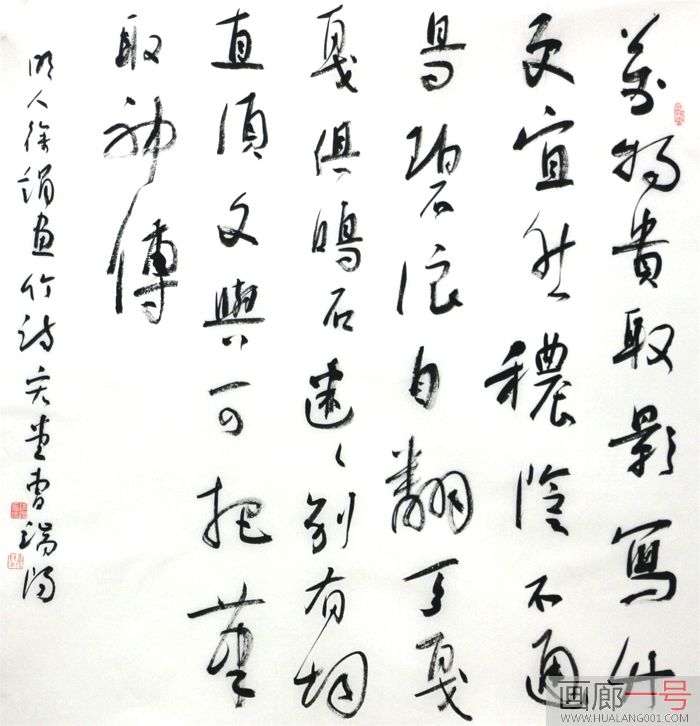 萬物貴取影寫竹
更宜然穠陰不通
鳥碧浪自翻天戛
戛俱鳴石迷〻別有烟
直須文與可把筆
取神傳
明人徐渭畫竹詩 曹瑞
画廊一号
WWW.HUALANG001.COM